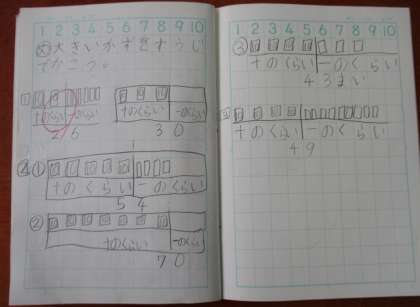 1 2 3 4 5 6 7 8 9 10
大きいかずをすうじ
でかこう。
十のくらい 一のくらい
2 6
十のくらい 一のくらい
3 0
②①
十のくらい 一のくらい
5 4
②
十のくらい 一のくらい
7 0
1 2 3 4 5 6 7 8 9 10
③
十のくらい 一のくらい
4 3まい
十のくらい 一のくらい
4 9